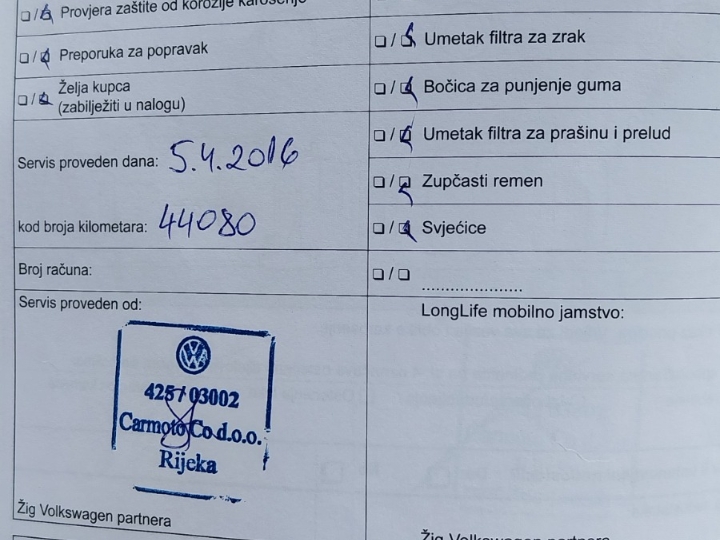 Provjera zaštite od korozije karoserije
Preporuka za popravak
Želja kupca
(zabilježiti u nalogu)
Servis proveden dana: 5.4.2016
kod broja kilometara: 44080
Broj računa:
Servis proveden od:
425/03002
Carmoto Co d.o.o.
Rijeka
Žig Volkswagen partnera
Umetak filtra za zrak
Bočica za punjenje guma
Umetak filtra za prašinu i prelud
Zupčasti remen
Svjećice
......................
LongLife mobilno jamstvo:
Žig Volkswagen partnera